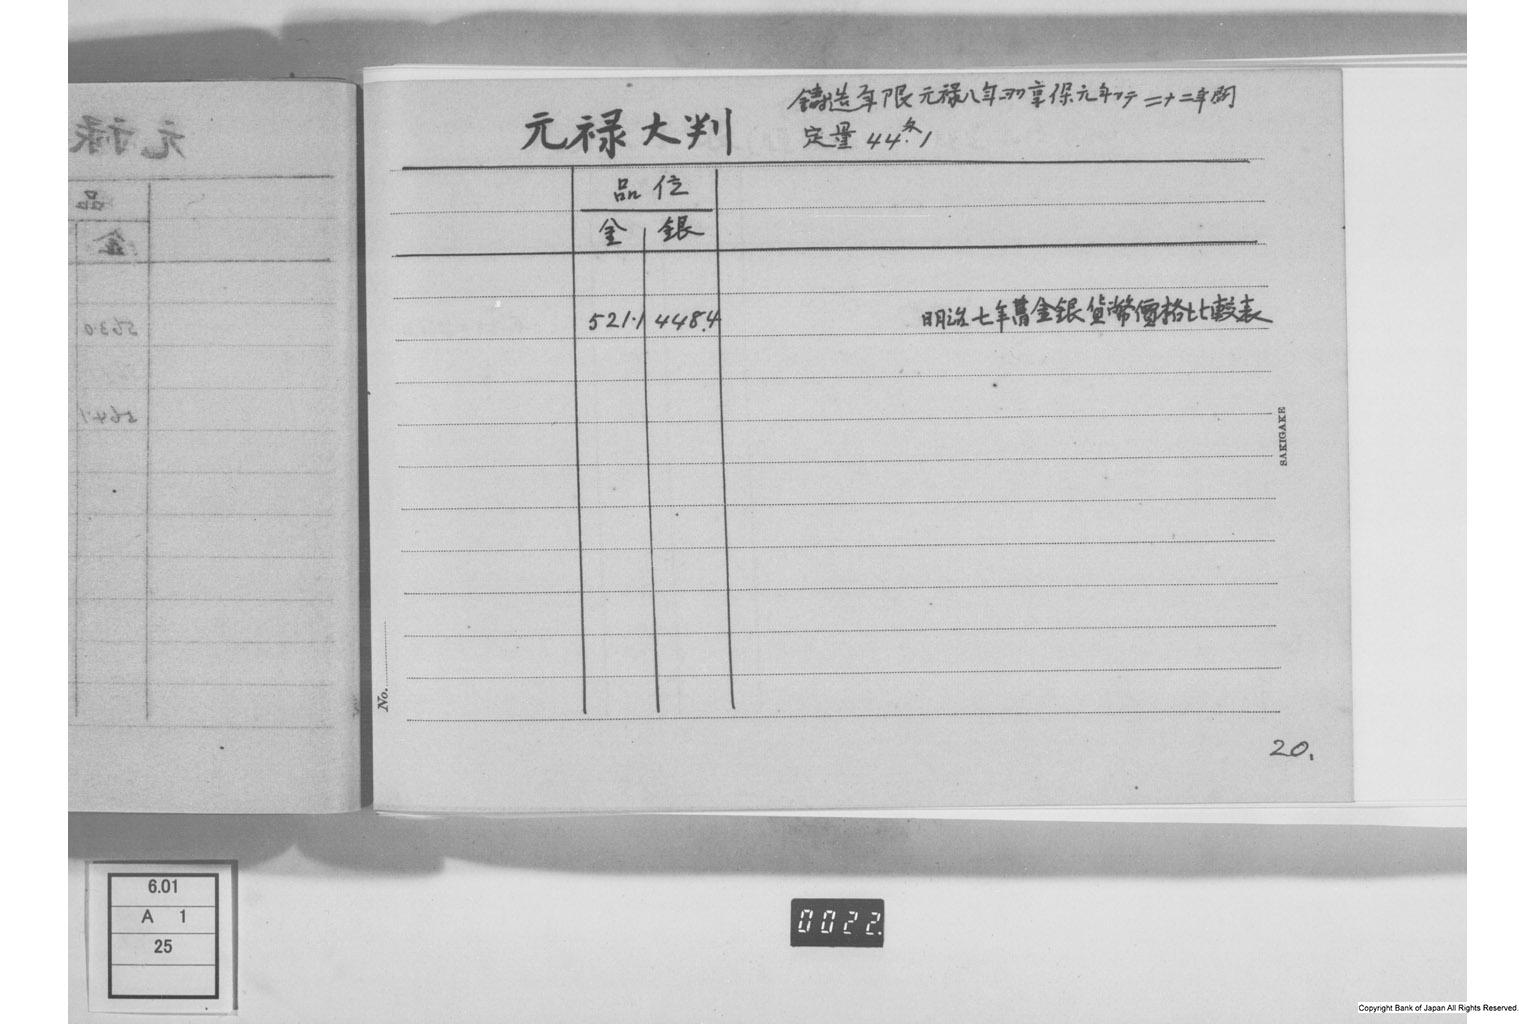 元禄大判
鋳造年限 元禄八年ヨリ享保元年マテ 二十二年間
定量 44匁.1
品位
金 銀
521.1 448.4 明治七年舊金銀貨幣價格比較表
SAKIGAKE
No.
20.
元禄
品
金
5630
564.1
6.01
A 1
25
0022.
Copyright Bank of Japan All Rights Reserved.